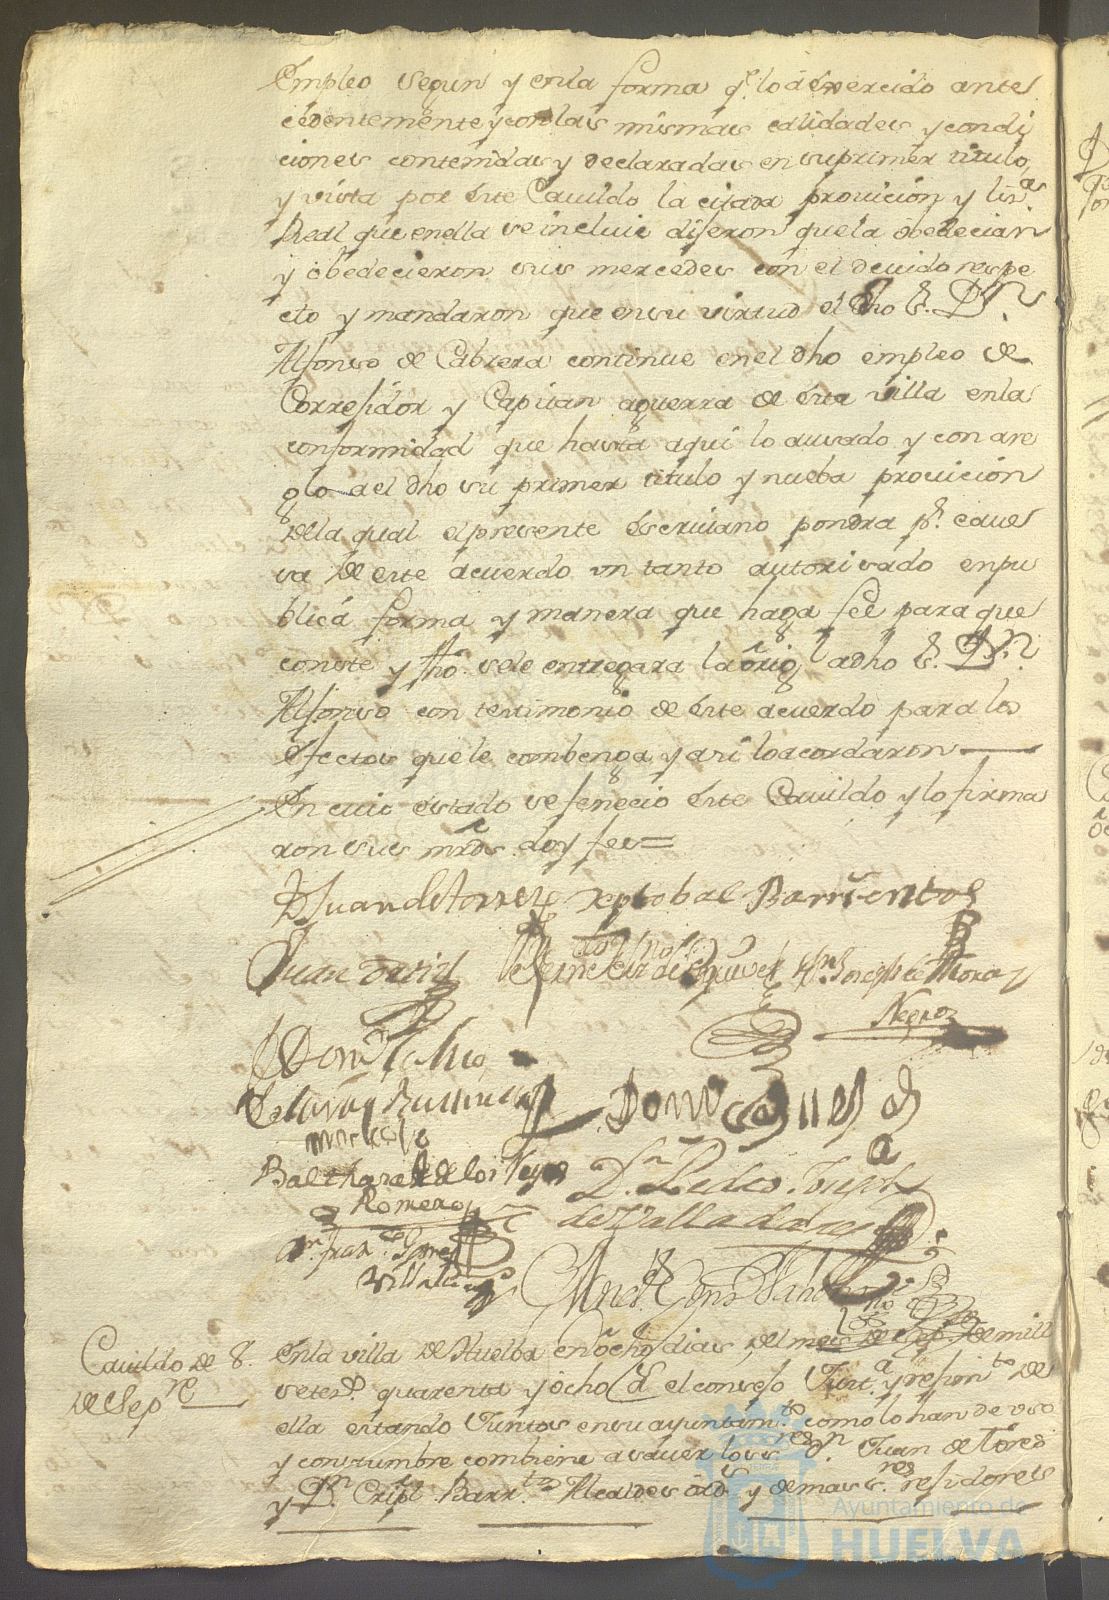 Empleo segun y enla forma q.e lo á éxercido ante
cedentemente y con las mismas calidades y condi
ciones contenidas y declaradas en su primer titulo,
y vista por éste Cavildo la citada provicion y lizn.a
Real que enella se incluie dijeron que la óbedecian
y óbedecieron sus mercedes con el devido respe
cto y mandaron que ensu virtud el dho S.r D.n
Alfonso de Cabrera continue enel dho empleo de
Corregidor y Capitan aguerra de ésta villa enla
conformidad que hasta aqui lo á usado y con are
glo ael dho su primer titulo y nueba provicion
dela qual el presente éscrivano pondra p.r cave
sa de este acuerdo vn tanto autorisado enpu
blica forma y manera que haga feé para que
conste y fho sele entregara la órig.l adho S.r D.n
Alfonso con testimonio de éste acuerdo para los
éfectos que le combenga, y asi lo acordaron
En cuio estado se fenecio éste Cavildo y lo firma
ron sus mrds. doy fee=
D Juan de torres Xptobal Barrientos
Juan de
Joseph de Mora
Negro
Balthasar de los Reyes D.n Pedro Joseph
Romero
de Valladares
fran.co
Cavildo de 8.
de Sep.re
Enla villa de Huelba en ócho dias del mes de Sep.re de mill
setes.s quarenta y ócho a.s el consejo Just.a y regim.to de
ella estando Juntos ensu ayuntam.to como lo han de vso
y costumbre combiene asaver los ss.res D.n Juan de tores
y D.n Cristl. Barr.tos Alcaldes órd.s y demas s.res regidores
Ayuntamiento de
HUELVA